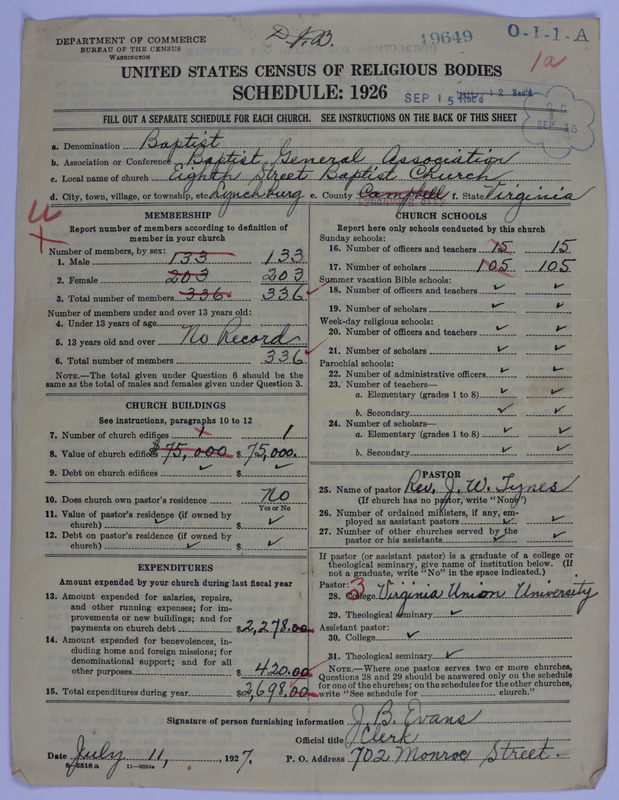 DEPARTMENT OF COMMERCE
BUREAU OF THE CENSUS
WASHINGTON
19649
0-1-1-A
1a
UNITED STATES CENSUS OF RELIGIOUS BODIES
SCHEDULE: 1926
SEP 15 Rec'd
FILL OUT A SEPARATE SCHEDULE FOR EACH CHURCH. SEE INSTRUCTIONS ON THE BACK OF THIS SHEET
a. Denomination Baptist
b. Association or Conference Baptist General Association
c. Local name of church Eighth Street Baptist Church
d. City, town, village, or township, etc. Lynchburg e. County Campbell f. State Virginia
MEMBERSHIP
Report number of members according to definition of
member in your church
Number of members, by sex:
1. Male 133 133
2. Female 203 203
3. Total number of members 336 336
Number of members under and over 13 years old:
4. Under 13 years of age
5. 13 years old and over No Record
6. Total number of members 336
NOTE.—The total given under Question 6 should be
same as the total of males and females given under Question 3.
CHURCH BUILDINGS
See instructions, paragraphs 10 to 12
7. Number of church edifices 1 1
8. Value of church edifices $75,000 $75,000.
9. Debt on church edifices $
10. Does church own pastor's residence No
Yes or No
11. Value of pastor's residence (if owned by
church) $
12. Debt on pastor's residence (if owned by
church) $
EXPENDITURES
Amount expended by your church during last fiscal year
13. Amount expended for salaries, repairs,
and other running expenses; for im-
provements or new buildings; and for
payments on church debt $2,278.00
14. Amount expended for benevolences, in-
cluding home and foreign missions; for
denominational support; and for all
other purposes $420.00
15. Total expenditures during year $2,698.00
CHURCH SCHOOLS
Report here only schools conducted by this church
Sunday schools:
16. Number of officers and teachers 15 15
17. Number of scholars 105 105
Summer vacation Bible schools:
18. Number of officers and teachers
19. Number of scholars
Week-day religious schools:
20. Number of officers and teachers
21. Number of scholars
Parochial schools:
22. Number of administrative officers
23. Number of teachers—
a. Elementary (grades 1 to 8)
b. Secondary
24. Number of scholars—
a. Elementary (grades 1 to 8)
b. Secondary
PASTOR
25. Name of pastor Rev. J. W. Tynes
(If church has no pastor, write "None")
26. Number of ordained ministers, if any, em-
ployed as assistant pastors
27. Number of other churches served by the
pastor or his assistants
If pastor (or assistant pastor) is a graduate of a college or
theological seminary, give name of institution below. (If
not a graduate, write "No" in the space indicated.)
Pastor: 3
28. College Virginia Union University
29. Theological seminary
Assistant pastor:
30. College
31. Theological seminary
NOTE.—Where one pastor serves two or more churches,
Questions 28 and 29 should be answered only on the schedule
for one of the churches; on the schedules for the other churches,
write "See schedule for church."
Signature of person furnishing information J. B. Evans
Official title Clerk
Date July 11, 1927. P. O. Address 702 Monroe Street.
8-5518a 11-9554a